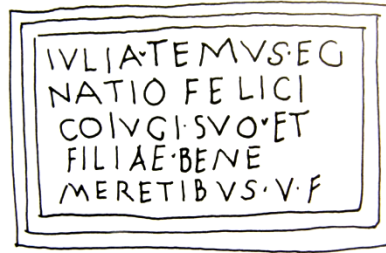 IVLIA·TEMVS·EG
NATIO FELICI
COIVGI·SVO·ET
FILIAE·BENE
MERETIBVS·V·F